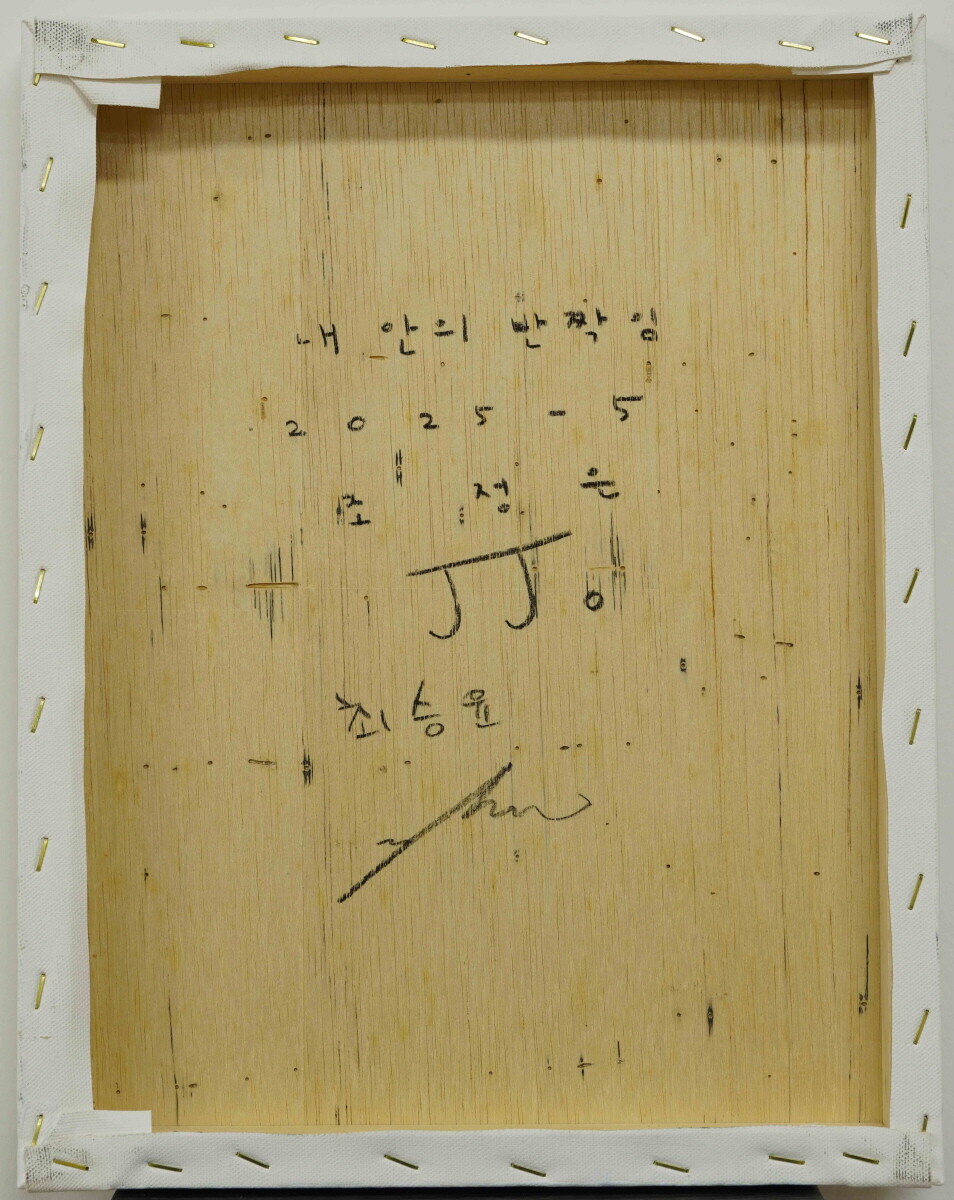 내 안의 반짝임
2025-5
조 정 은
최승윤